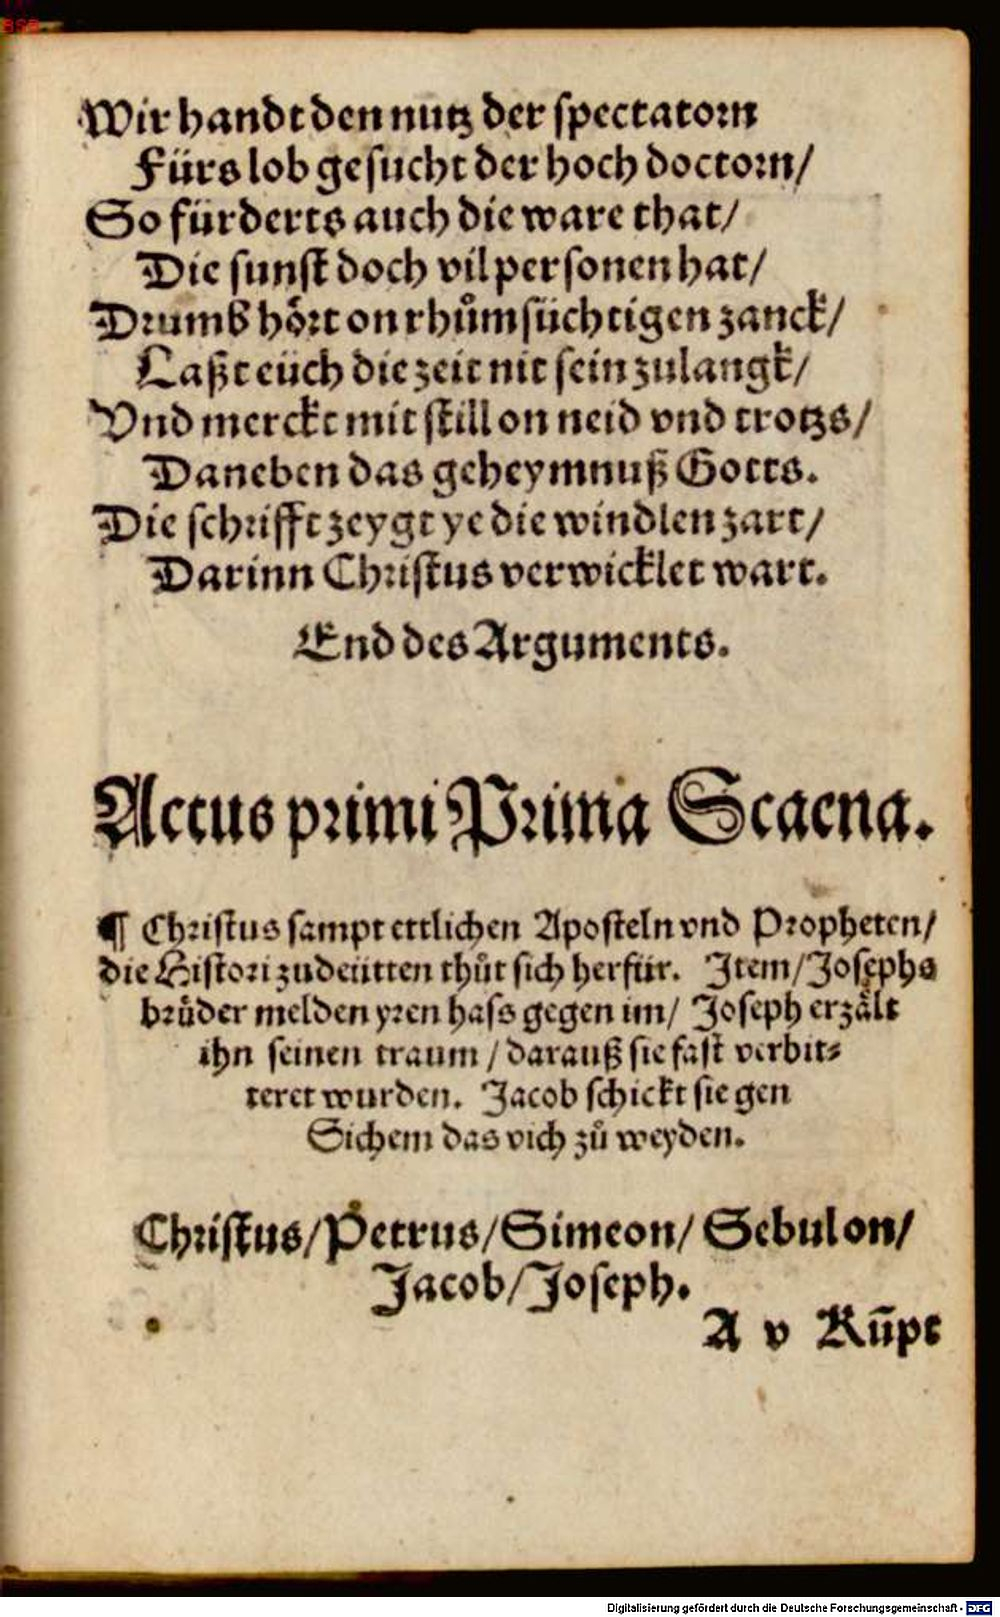 BSB
Wir handt den nutz der spectatorn
Fürs lob gesucht der hoch doctorn/
So fürderts auch die ware that/
Die sunst doch vil personen hat/
Drumb hört on rhůmsüchtigen zanck/
Laßt eüch die zeit nit sein zulangk/
Vnd merckt mit still on neid vnd trotzs/
Daneben das geheymnuß Gotts.
Die schrifft zeygt ye die windlen zart/
Darinn Christus verwicklet wart.
End des Arguments.
Actus primi Prima Scaena.
¶ Christus sampt ettlichen Aposteln vnd Propheten/
die Histori zudeütten thůt sich herfür. Item/Josephs
brůder melden yren hass gegen im/ Joseph erzält
ihn seinen traum/darauß sie fast verbit⸗
teret wurden. Jacob schickt sie gen
Sichem das vich zů weyden.
Christus/Petrus/Simeon/Sebulon/
Jacob/Joseph.
A v Kūpt
Digitalisierung gefördert durch die Deutsche Forschungsgemeinschaft - DFG